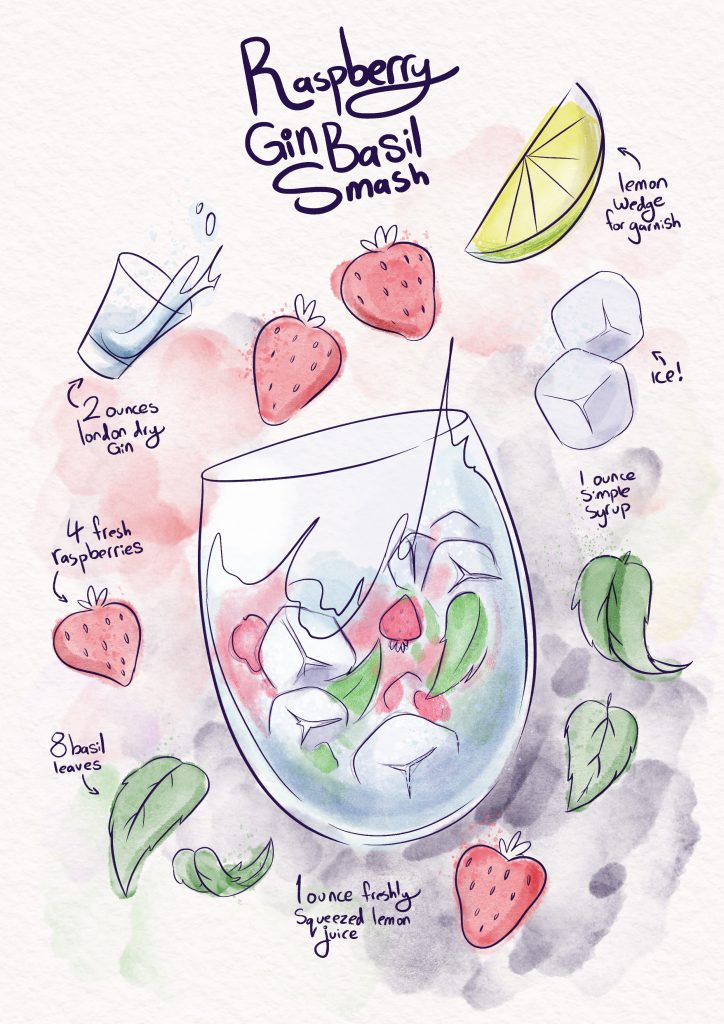 Raspberry
Gin Basil
Smash
lemon
wedge
for garnish
2 ounces
london dry
Gin
ice!
1 ounce
simple
syrup
4 fresh
raspberries
8 basil
leaves
1 ounce freshly
squeezed lemon
juice